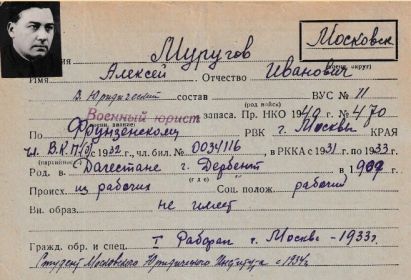 Московск
(воен. округ)
ия Муругов
Имя Алексей Отчество Иванович
В. Юридический состав ВУС № 11
(род войск)
Военный юрист запаса. Пр. НКО 1940 г. № 470
По Фрунзенскому РВК г. Москвы КРАЯ
чл. В.К.П(б) с 1932, чл. бил. № 0034116, в РККА с 1931 г. по 1933 г.
(партийность)
Род. в Дагестане г. Дербент в 1909 г.
(где)
Происх. из рабочих Соц. полож. рабочий
Вн. образ. не имеет
Гражд. обр. и спец. I Рабфак г. Москвы - 1933г.
Студент Московского Юридического Института с 1934г.